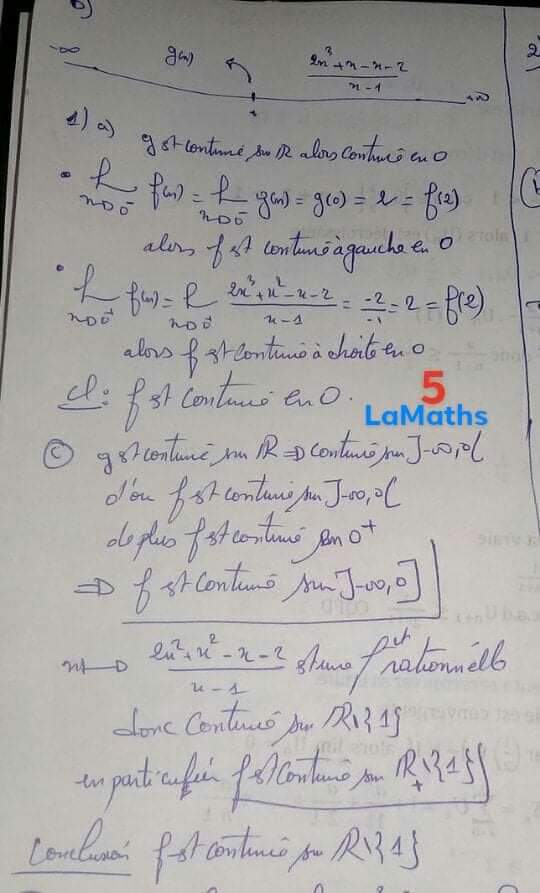 b)
-∞ g(x) (2x³+x-x-2)/(x-1) +∞
1) a) g st continue sur ℝ alors continue en 0
• L_{x→0⁻} f(x) = L_{x→0⁻} g(x) = g(0) = 2 = f(2)
alors f st continue à gauche en 0
• L_{x→0⁺} f(x) = L_{x→0⁺} (2x³+x²-x-2)/(x-1) = -2/-1 = 2 = f(2)
alors f st continue à droite en 0
cl: f st continue en 0.
5
LaMaths
c) g st continue sur ℝ ⇒ continue sur ]-∞,0[
d'où f st continue sur ]-∞,0[
de plus f st continue en 0⁺
⇒ f st continue sur ]-∞,0]
x ↦ (2x²+x²-x-2)/(x-1) st une fct rationnelle
donc continue sur ℝ\{1}
en particulier f st continue sur ℝ₊\{1}
Conclusion f st continue sur ℝ\{1}